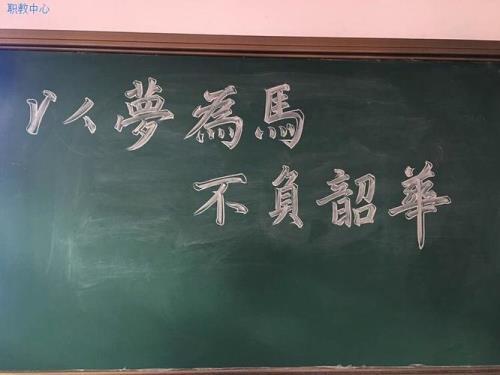 职教中心
以夢為馬
不負韶華